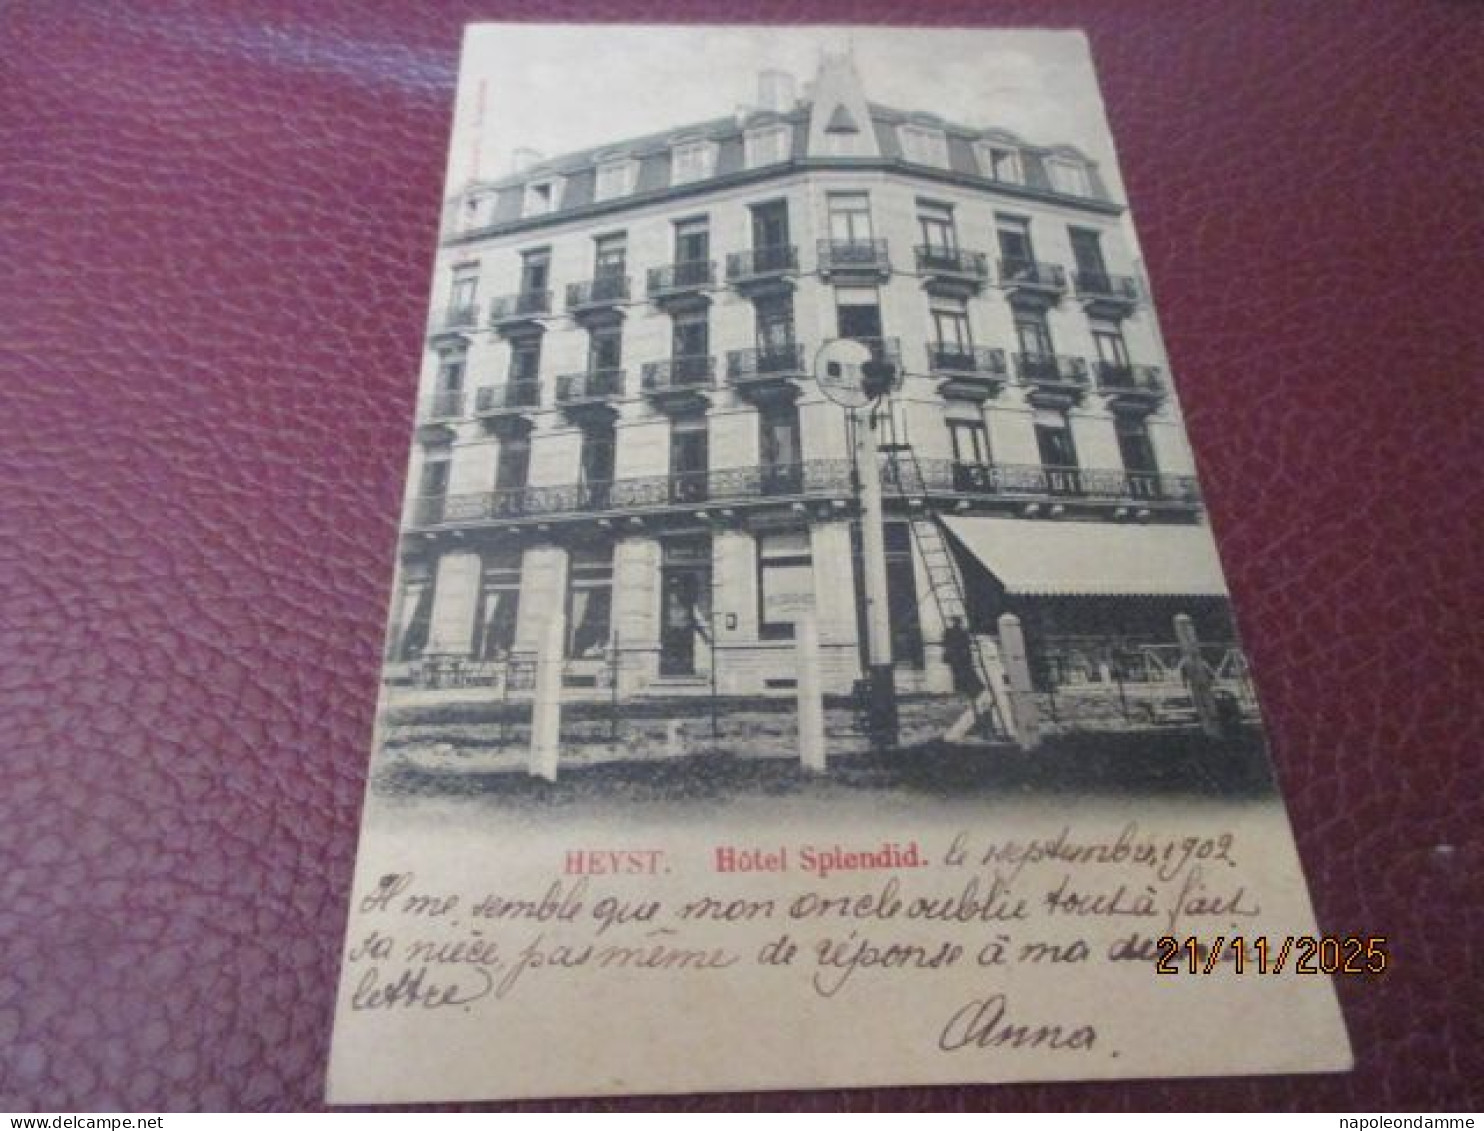 HEYST. Hôtel Splendid. le septembre, 1902.
Il me semble que mon oncle oublie tout à fait
sa nièce, pas même de réponse à ma
lettre.
Anna.
21/11/2025
napoleondamme